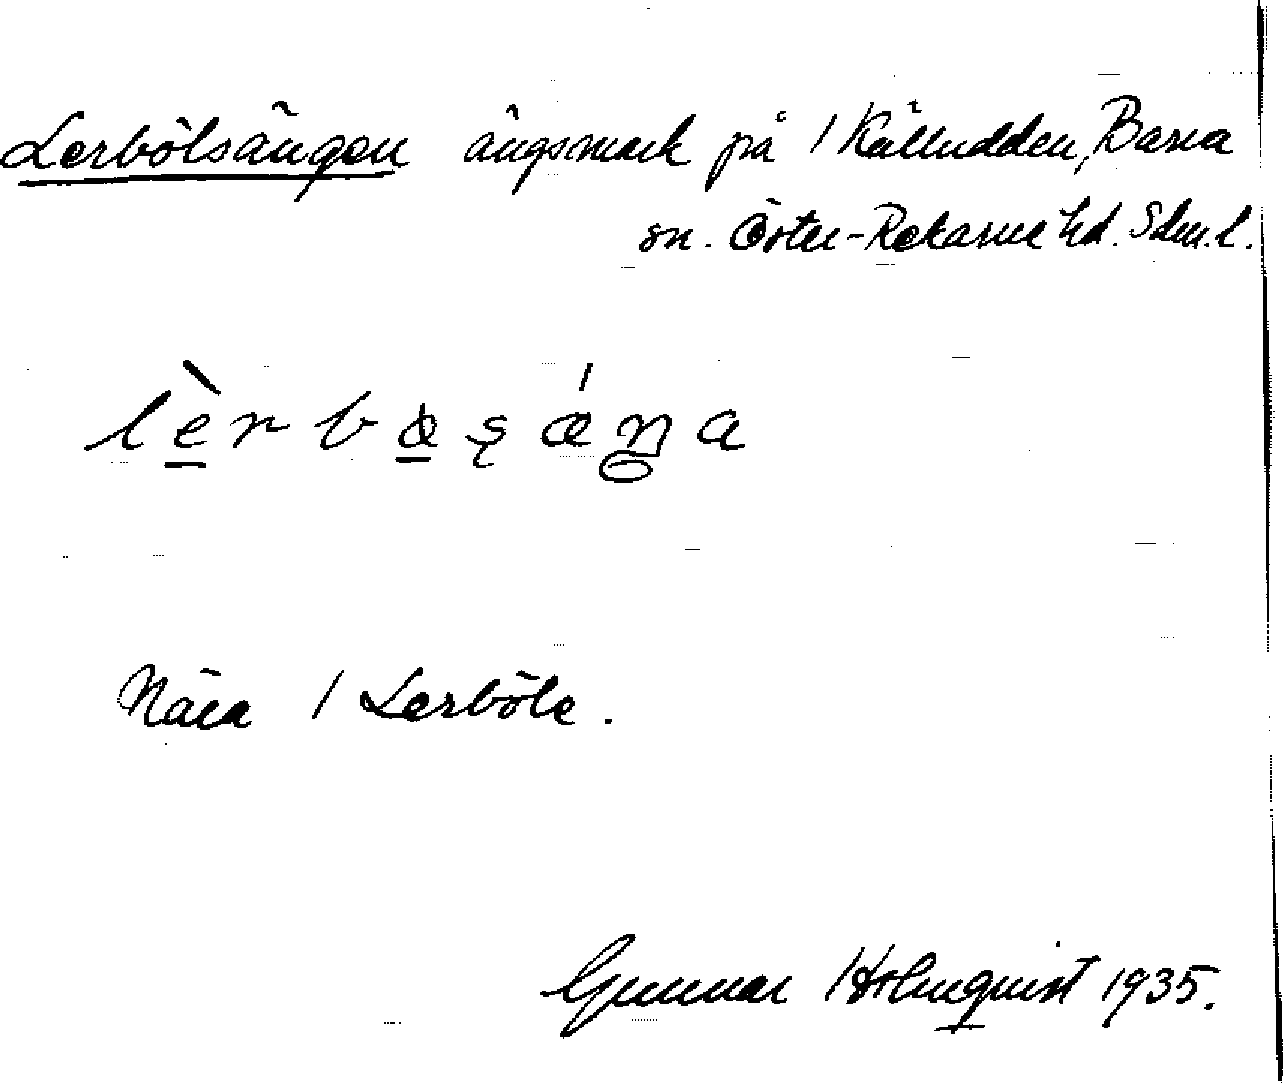 Lerbölsängen ängsmark på / Källudden, Barva
sn. Öster-Rekarne hd. Sdm. l.
lèrbøsǽŋa
Nära / Lerböle.
Gunnar Holmquist 1935.